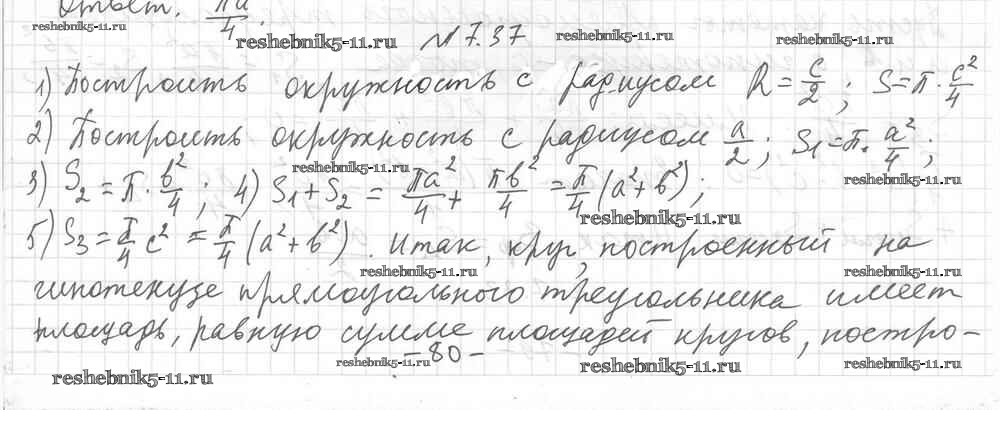 Ответ. πa/4.
reshebnik5-11.ru
reshebnik5-11.ru
reshebnik5-11.ru
reshebnik5-11.ru
№ 7.37
1) Построить окружность с радиусом R = c/2 ; S = π · c²/4
2) Построить окружность с радиусом a/2 ; S₁ = π · a²/4 ;
reshebnik5-11.ru
reshebnik5-11.ru
3) S₂ = π · b²/4 ; 4) S₁ + S₂ = πa²/4 + πb²/4 = π/4 (a² + b²) ;
reshebnik5-11.ru
5) S₃ = π/4 c² = π/4 (a² + b²) . Итак, круг, построенный на
reshebnik5-11.ru
reshebnik5-11.ru
гипотенузе прямоугольного треугольника имеет
площадь, равную сумме площадей кругов, постро-
- 80 -
reshebnik5-11.ru
reshebnik5-11.ru
reshebnik5-11.ru
reshebnik5-11.ru